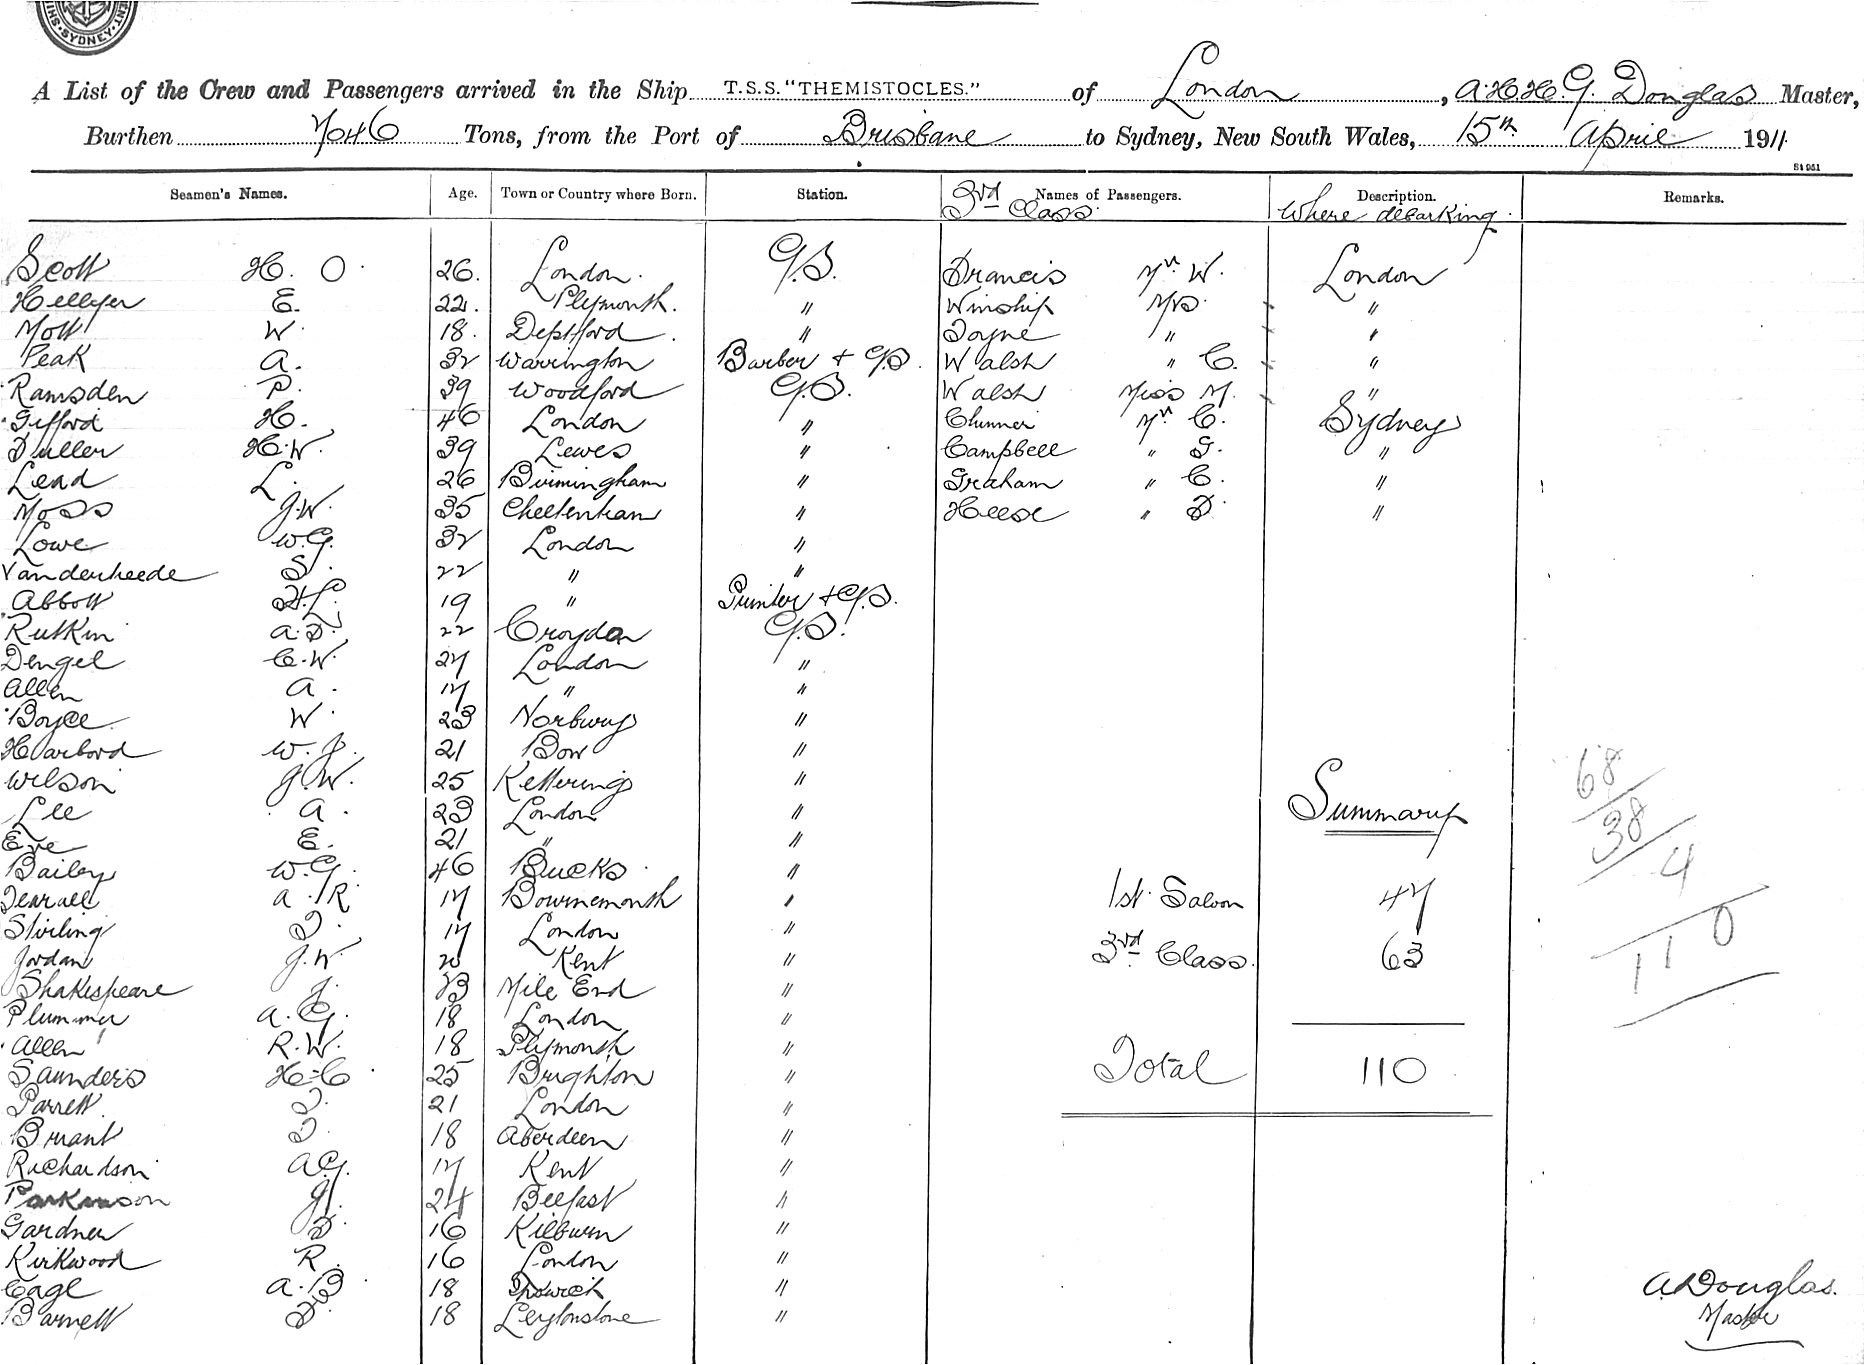 SYDNEY
A List of the Crew and Passengers arrived in the Ship T.S.S. "THEMISTOCLES." of London, A.H.H.G. Douglas Master,
Burthen 7046 Tons, from the Port of Brisbane to Sydney, New South Wales, 15th April 1911.
St 951
Seamen's Names. Age. Town or Country where Born. Station. 3rd Class Names of Passengers. Description. Where debarking. Remarks.
Scott H. O. 26. London. G.S. Francis Mr W. London
Hellyer E. 22. Plymouth. " Winship Mrs "
Mott W. 18. Deptford. " Toyne " "
Peak A. 32 Warrington Barber + G.S. Walsh " C. "
Ramsden P. 39 Woodford G.S. Walsh Miss M. "
Gifford H. 46 London " Mr C. Sydney
Fuller H.W. 39 Lewes " Campbell " G. "
Lead L. 26 Birmingham " Graham " C. "
Moss J.W. 35 Cheltenham " Heese " F. "
Lowe W.G. 32 London "
Vanderheede S. 22 " "
Abbott 19 " Printer + G.S.
Rutkin A.F. 22 Croydon G.S.
Dengel C.W. 27 London "
Allen A. 17 " "
Boyce W. 23 Norbury "
Harbord W.J. 21 Bow "
Wilson J.W. 25 Kettering "
Lee A. 23 London " Summary
Eve E. 21 " "
Bailey W.G. 46 Bucks "
A.R. 17 Bournemouth " 1st Saloon 47
Stirling T. 17 London "
Jordan J.W. 20 Kent " 3rd Class. 63
Shakespeare J. 23 Mile End "
Plummer A.G. 18 London "
Allen R.W. 18 Plymouth "
Saunders H.C. 25 Brighton " Total 110
Parrett T. 21 London "
Bryant T. 18 Aberdeen "
Richardson A.G. 17 Kent "
Parkinson J. 24 Belfast "
Gardner F. 16 Kilburn "
Kirkwood R. 16 London "
Cagl A.B. 18 Ipswich "
Barnett F. 18 Leytonstone "
68
38
4
110
A Douglas.
Master